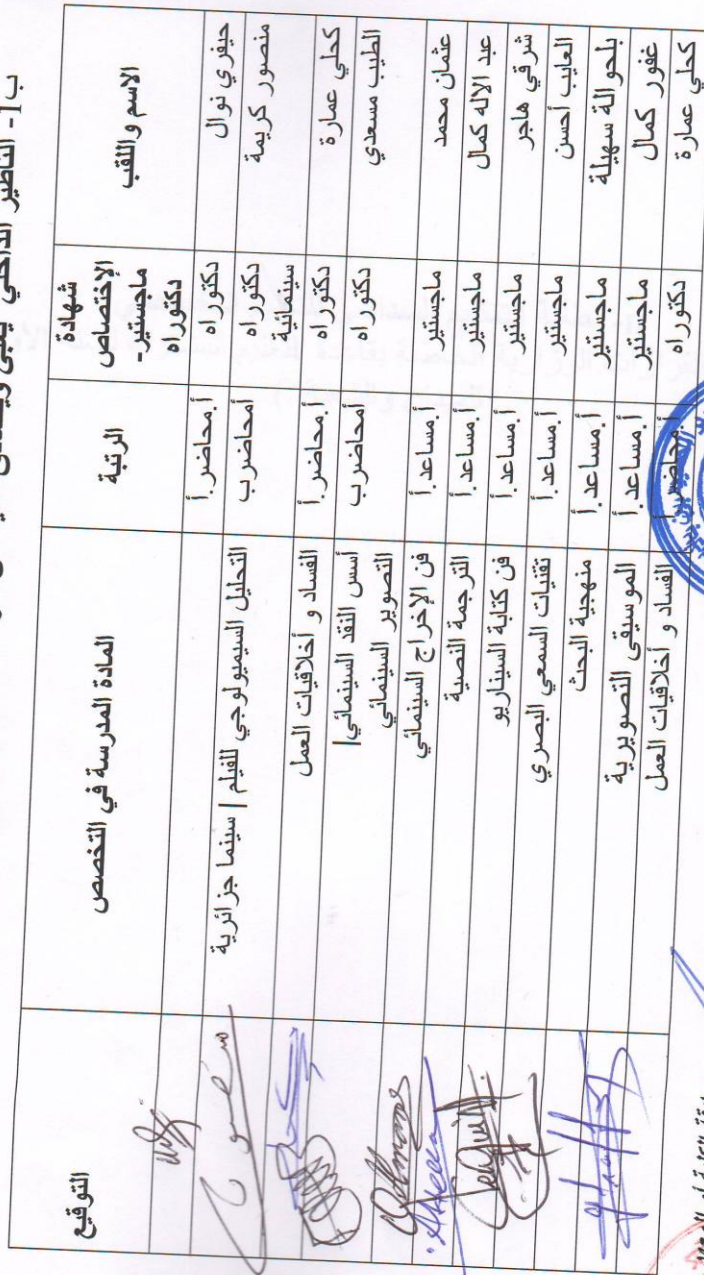 ب1- التأطير الداخلي
الاسم واللقب
شهادة.
الإختصاص
ماجستير-
دكتوراه
الرتبة
المادة المدرسة في التخصص
التوقيع
حيفري نوال
دكتوراه
أ.محاضر.أ
منصور كريمة
دكتوراه
سينمائية
أمحاضرب
التحليل السيميولوجي للفيلم | سينما جزائرية
كحلي عمارة
دكتوراه
أ.محاضر.أ
الفساد و أخلاقيات العمل
الطيب مسعدي
دكتوراه
أمحاضرب
أسس النقد السينمائي|
التصوير السينمائي
عثمان محمد
ماجستير
أ.مساعد.أ
فن الإخراج السينمائي
عبد الاله كمال
ماجستير
أ.مساعد.أ
الترجمة النصية
شرقي هاجر
ماجستير
أ.مساعد.أ
فن كتابة السيناريو
العايب أحسن
ماجستير
أ.مساعد.أ
تقنيات السمعي البصري
بلحوالة سهيلة
ماجستير
أ.مساعد.أ
منهجية البحث
غفور كمال
ماجستير
أ.مساعد.أ
الموسيقى التصويرية
كحلي عمارة
دكتوراه
أ.محاضر.أ
الفساد و أخلاقيات العمل